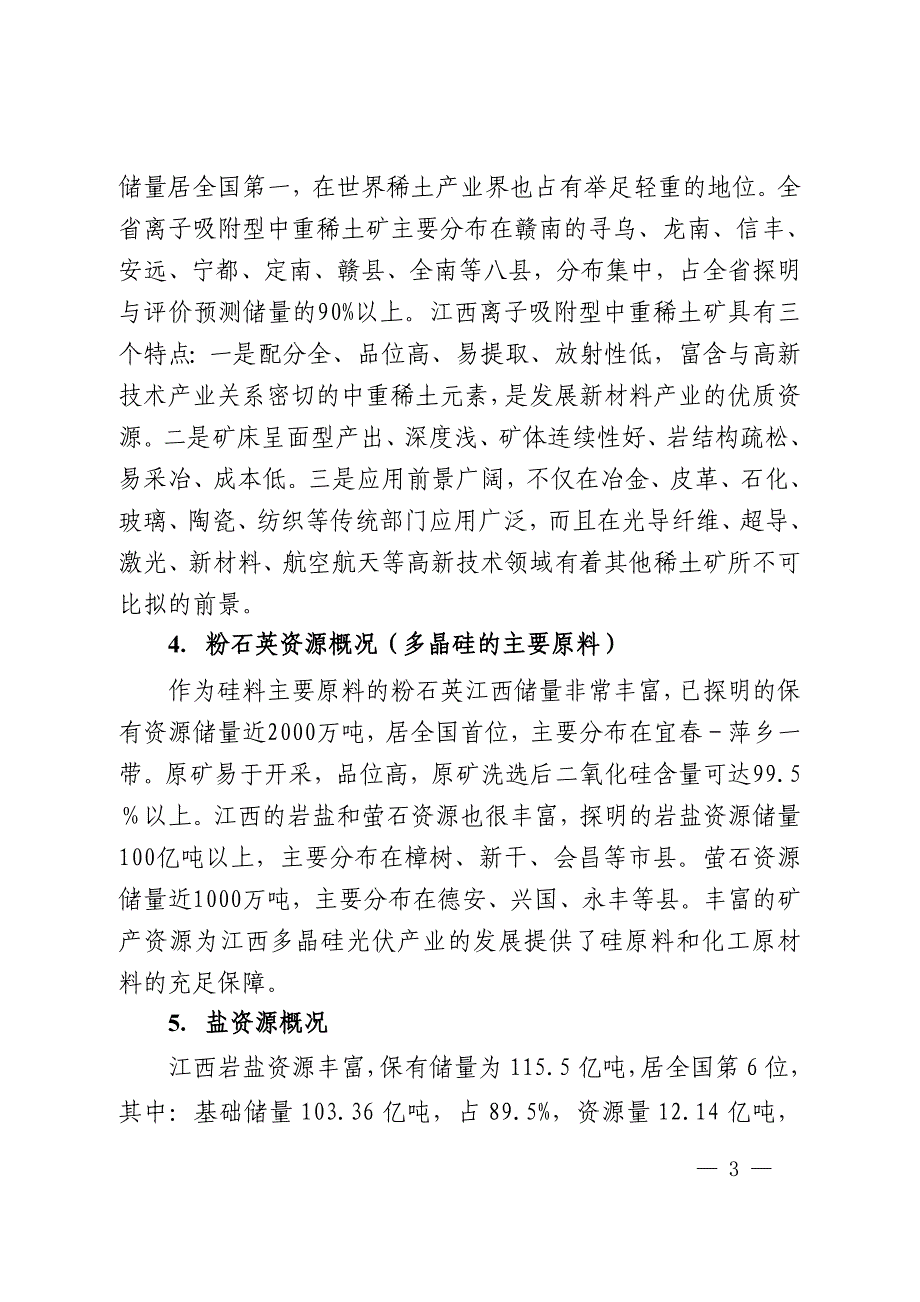 储量居全国第一，在世界稀土产业界也占有举足轻重的地位。全
省离子吸附型中重稀土矿主要分布在赣南的寻乌、龙南、信丰、
安远、宁都、定南、赣县、全南等八县，分布集中，占全省探明
与评价预测储量的90%以上。江西离子吸附型中重稀土矿具有三
个特点：一是配分全、品位高、易提取、放射性低，富含与高新
技术产业关系密切的中重稀土元素，是发展新材料产业的优质资
源。二是矿床呈面型产出、深度浅、矿体连续性好、岩结构疏松、
易采冶、成本低。三是应用前景广阔，不仅在冶金、皮革、石化、
玻璃、陶瓷、纺织等传统部门应用广泛，而且在光导纤维、超导、
激光、新材料、航空航天等高新技术领域有着其他稀土矿所不可
比拟的前景。
4. 粉石英资源概况（多晶硅的主要原料）
作为硅料主要原料的粉石英江西储量非常丰富，已探明的保
有资源储量近2000万吨，居全国首位，主要分布在宜春－萍乡一
带。原矿易于开采，品位高，原矿洗选后二氧化硅含量可达99.5
％以上。江西的岩盐和萤石资源也很丰富，探明的岩盐资源储量
100亿吨以上，主要分布在樟树、新干、会昌等市县。萤石资源
储量近1000万吨，主要分布在德安、兴国、永丰等县。丰富的矿
产资源为江西多晶硅光伏产业的发展提供了硅原料和化工原材
料的充足保障。
5. 盐资源概况
江西岩盐资源丰富，保有储量为 115.5 亿吨，居全国第 6 位，
其中：基础储量 103.36 亿吨，占 89.5%，资源量 12.14 亿吨，
— 3 —